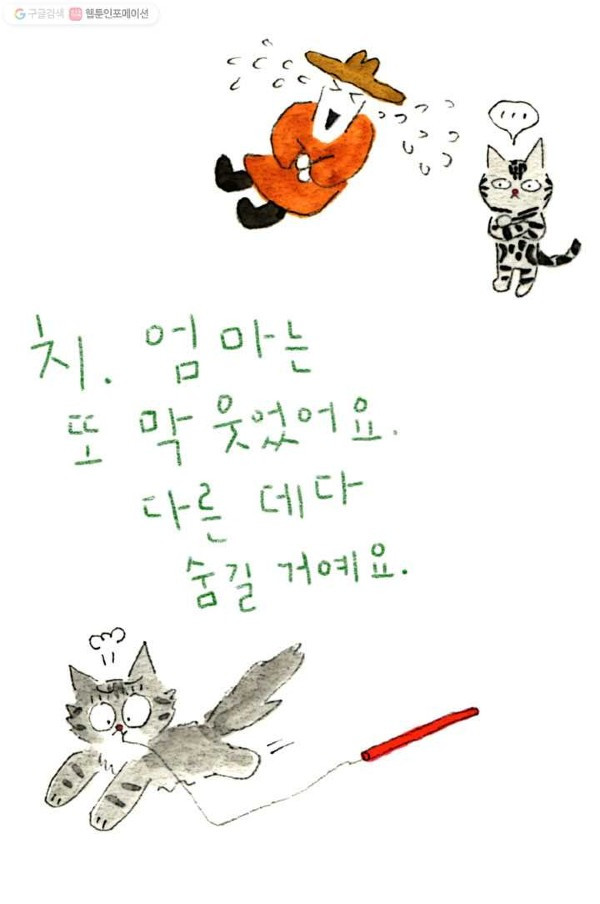 구글검색 웹툰인포메이션
...
치. 엄마는
또 막 웃었어요.
다른 데다
숨길 거예요.